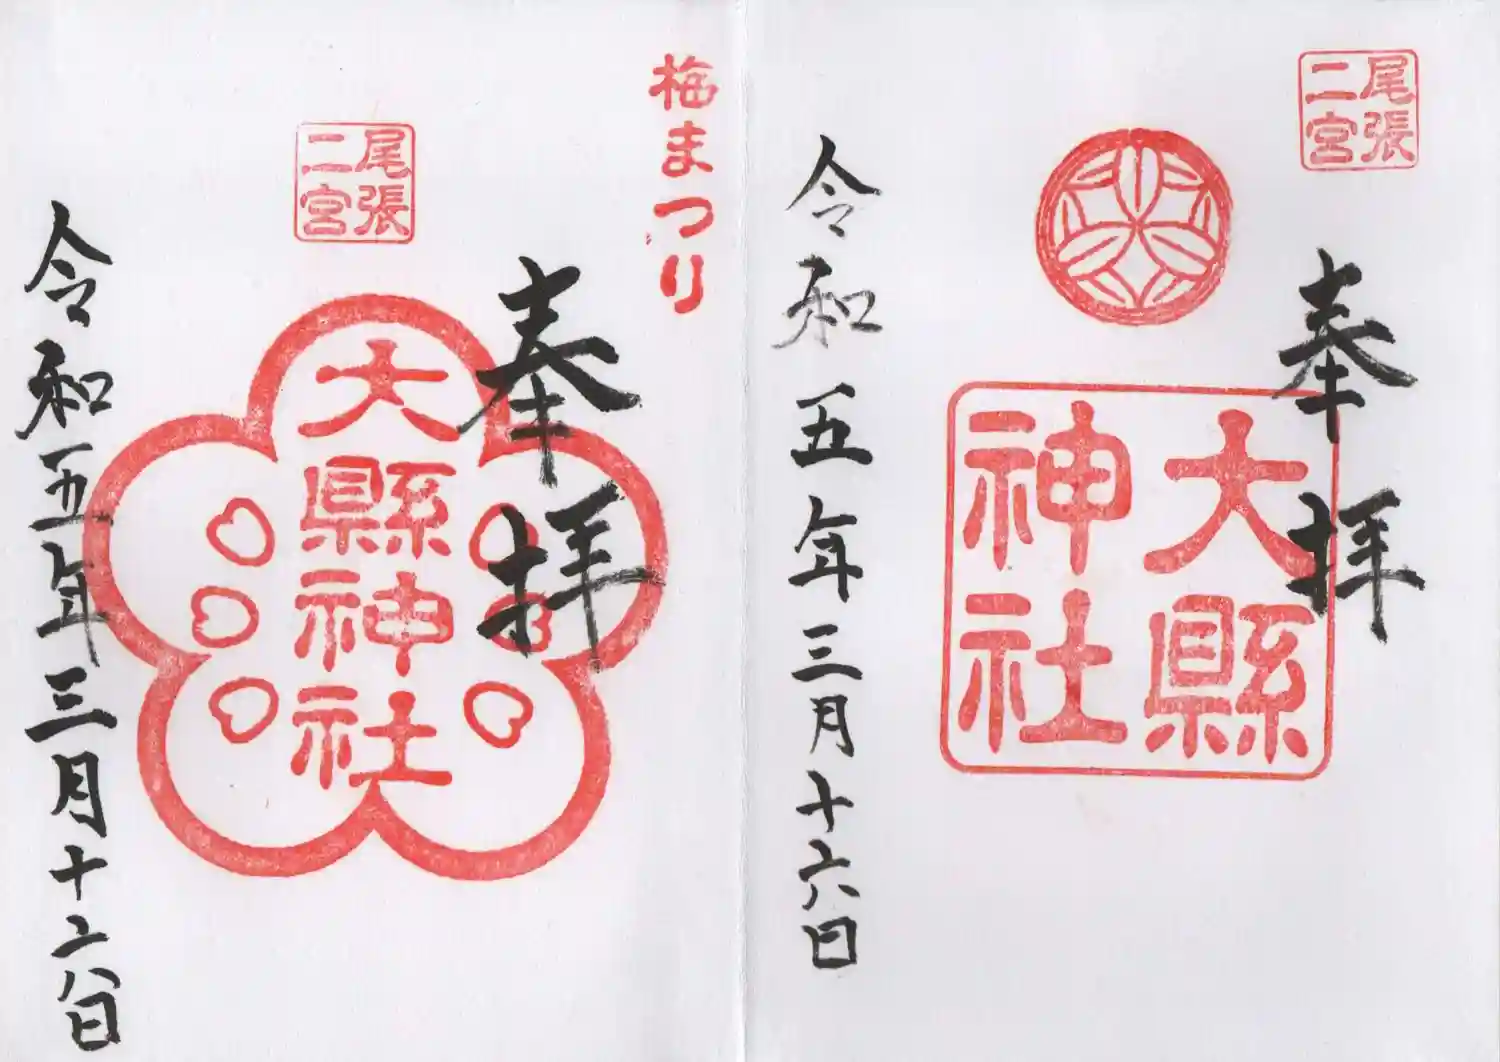 尾張
二宮
奉拝
大縣
神社
令和五年三月十六日
梅まつり
奉拝
尾張
二宮
大縣神社
令和五年三月十六日